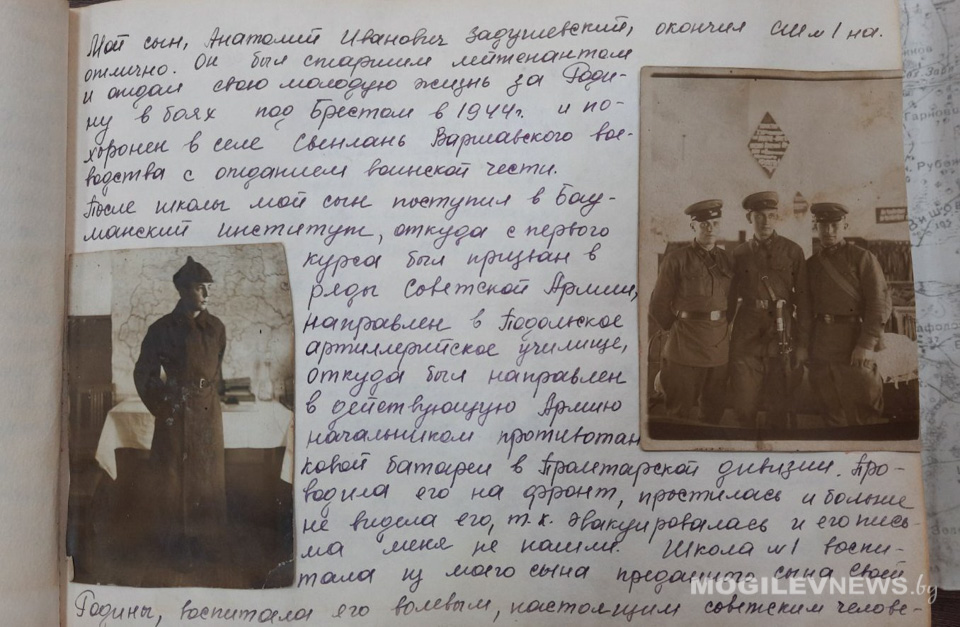 Мой сын, Анатолий Иванович Задушевский, окончил СШ №1 на.
отлично. Он был старшим лейтенантом
и отдал свою молодую жизнь за Роди-
ну в боях под Брестом в 1944г. и по-
хоронен в селе Свенлань Варшавского вое-
водства с отданием воинской чести.
После школы мой сын поступил в Бау-
манский институт, откуда с первого
курса был призван в
ряды Советской Армии,
направлен в Подольское
артиллерийское училище,
откуда был направлен
в действующую Армию
начальником противотан
ковой батареи в Пролетарской дивизии. Про-
водила его на фронт, простилась и больше
не видела его, т.к. эвакуировалась и его пись-
ма меня не нашли. Школа №1 воспи-
тала из моего сына преданного сына своей
Родины, воспитала его волевым, настоящим советским челове-
MOGILEVNEWS.by